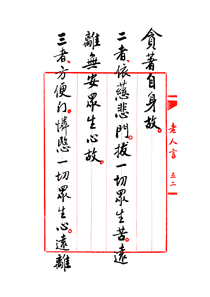 貪著自身故。
二者、依慈悲門。拔一切眾生苦。遠
離無安眾生心故。
三者、方便門。憐愍一切眾生心。遠離
老人言 五二